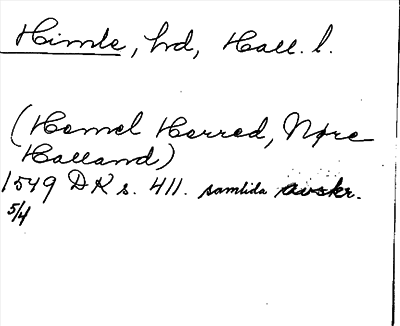 Himle, hd, Hall. l.
(Hemel Herred, Nøre
Halland)
1549 DK s. 411. samtida avskr.
5/4